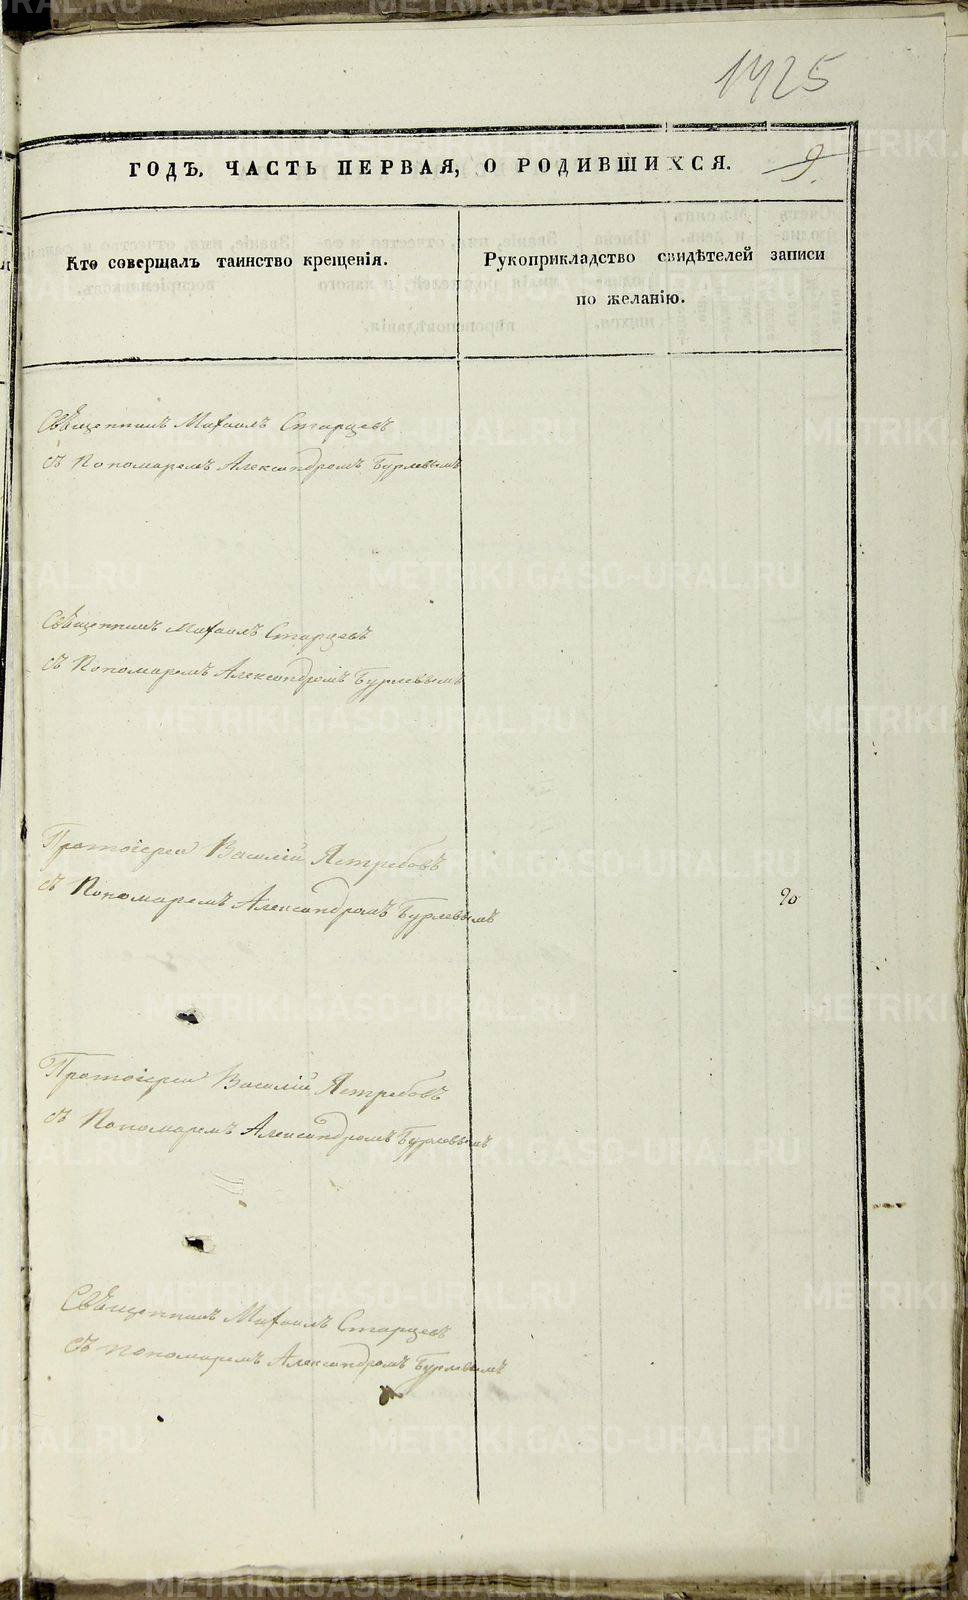 1425
ГОДЪ. ЧАСТЬ ПЕРВАЯ, О РОДИВШИХСЯ.
9.
Кто совершалъ таинство крещенія.
Рукоприкладство свидѣтелей записи
по желанію.
Священникъ Михаилъ Старцевъ
съ Пономаремъ Александромъ Бурлевымъ
Священникъ Михаилъ Старцевъ
съ Пономаремъ Александромъ Бурлевымъ
Протоіерей Василій Ястребовъ
съ Пономаремъ Александромъ Бурлевымъ
20
Протоіерей Василій Ястребовъ
съ Пономаремъ Александромъ Бурлевымъ
Священникъ Михаилъ Старцевъ
съ пономаремъ Александромъ Бурлевымъ
METRIKI.GASO-URAL.RU